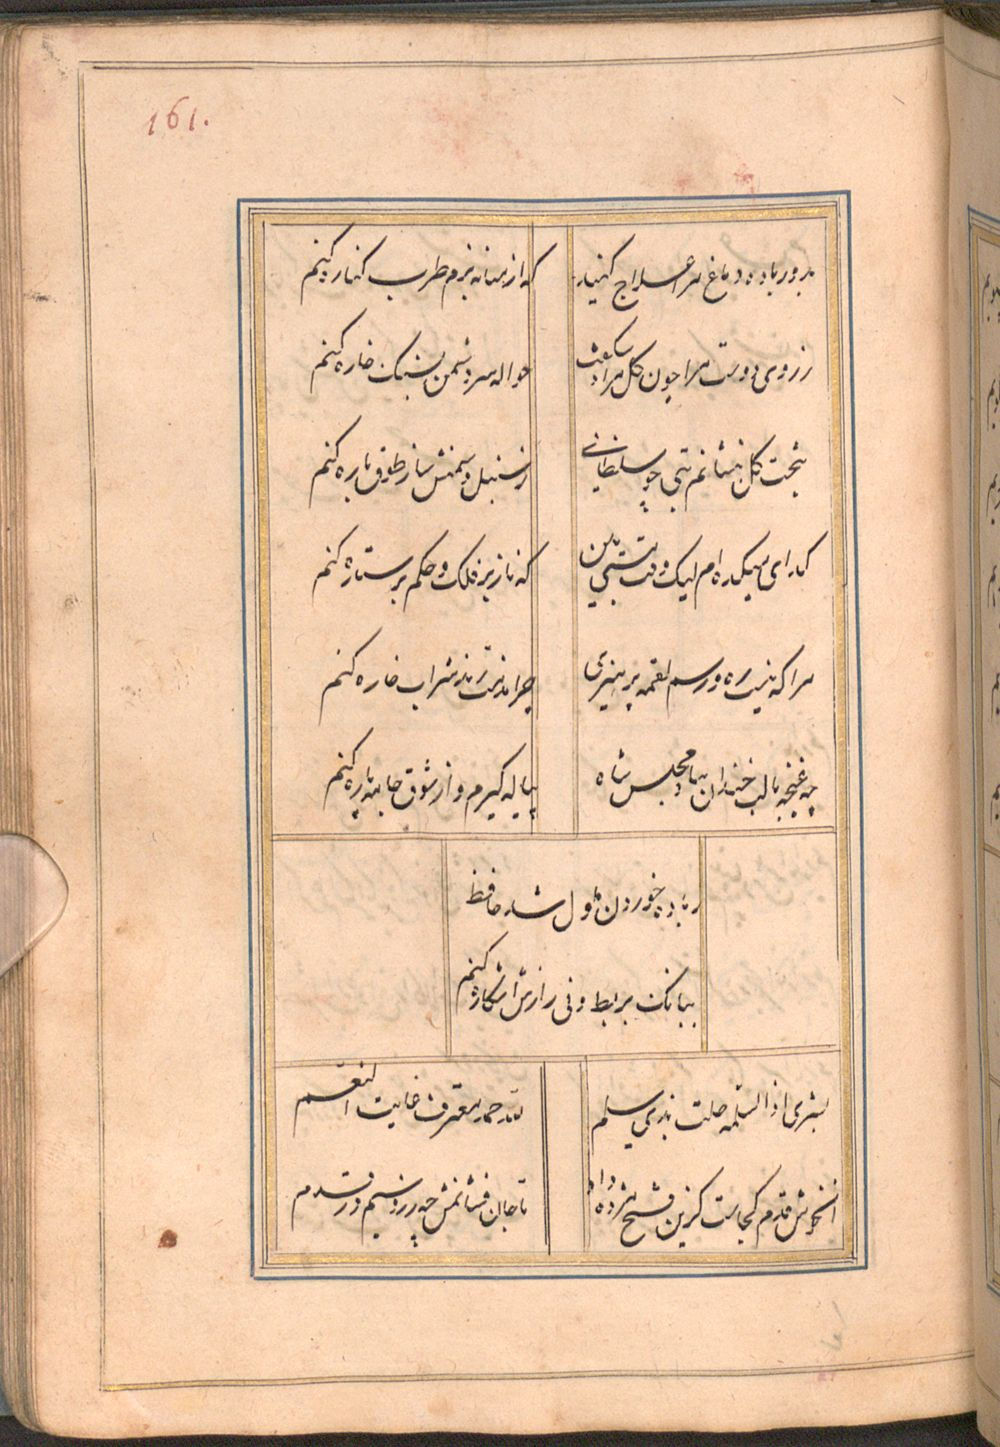 161.
بدور باده دماغ مرا علاج کنید
که از میانه بزم طرب کناره کنم
ز روی دوست مرا چون گل مراد شکفت
حواله سر دشمن بسنگ خاره کنم
بتخت گل بنشانم بتی چو سلطانی
ز سنبل و سمنش ساز طوق یاره کنم
کدای میکده ام لیک وقت مستی بین
که ناز بر فلک و حکم بر ستاره کنم
مرا که نیست ره و رسم لقمه پرهیزی
چرا مذمت رند شراب خاره کنم
چه غنچه با لب خندان بیاد مجلس شاه
پیاله گیرم و از شوق جامه پاره کنم
ز باده خوردن ملول شد حافظ
ببانگ بربط و نی رازش اشکاره کنم
بشری اذا السلامه حلت بذی سلم
لله حمد معترف غایت النعم
آن خوش قدم کجاست کزین فتح مژده داد
تا جان فشانمش چه زر و سیم در قدم